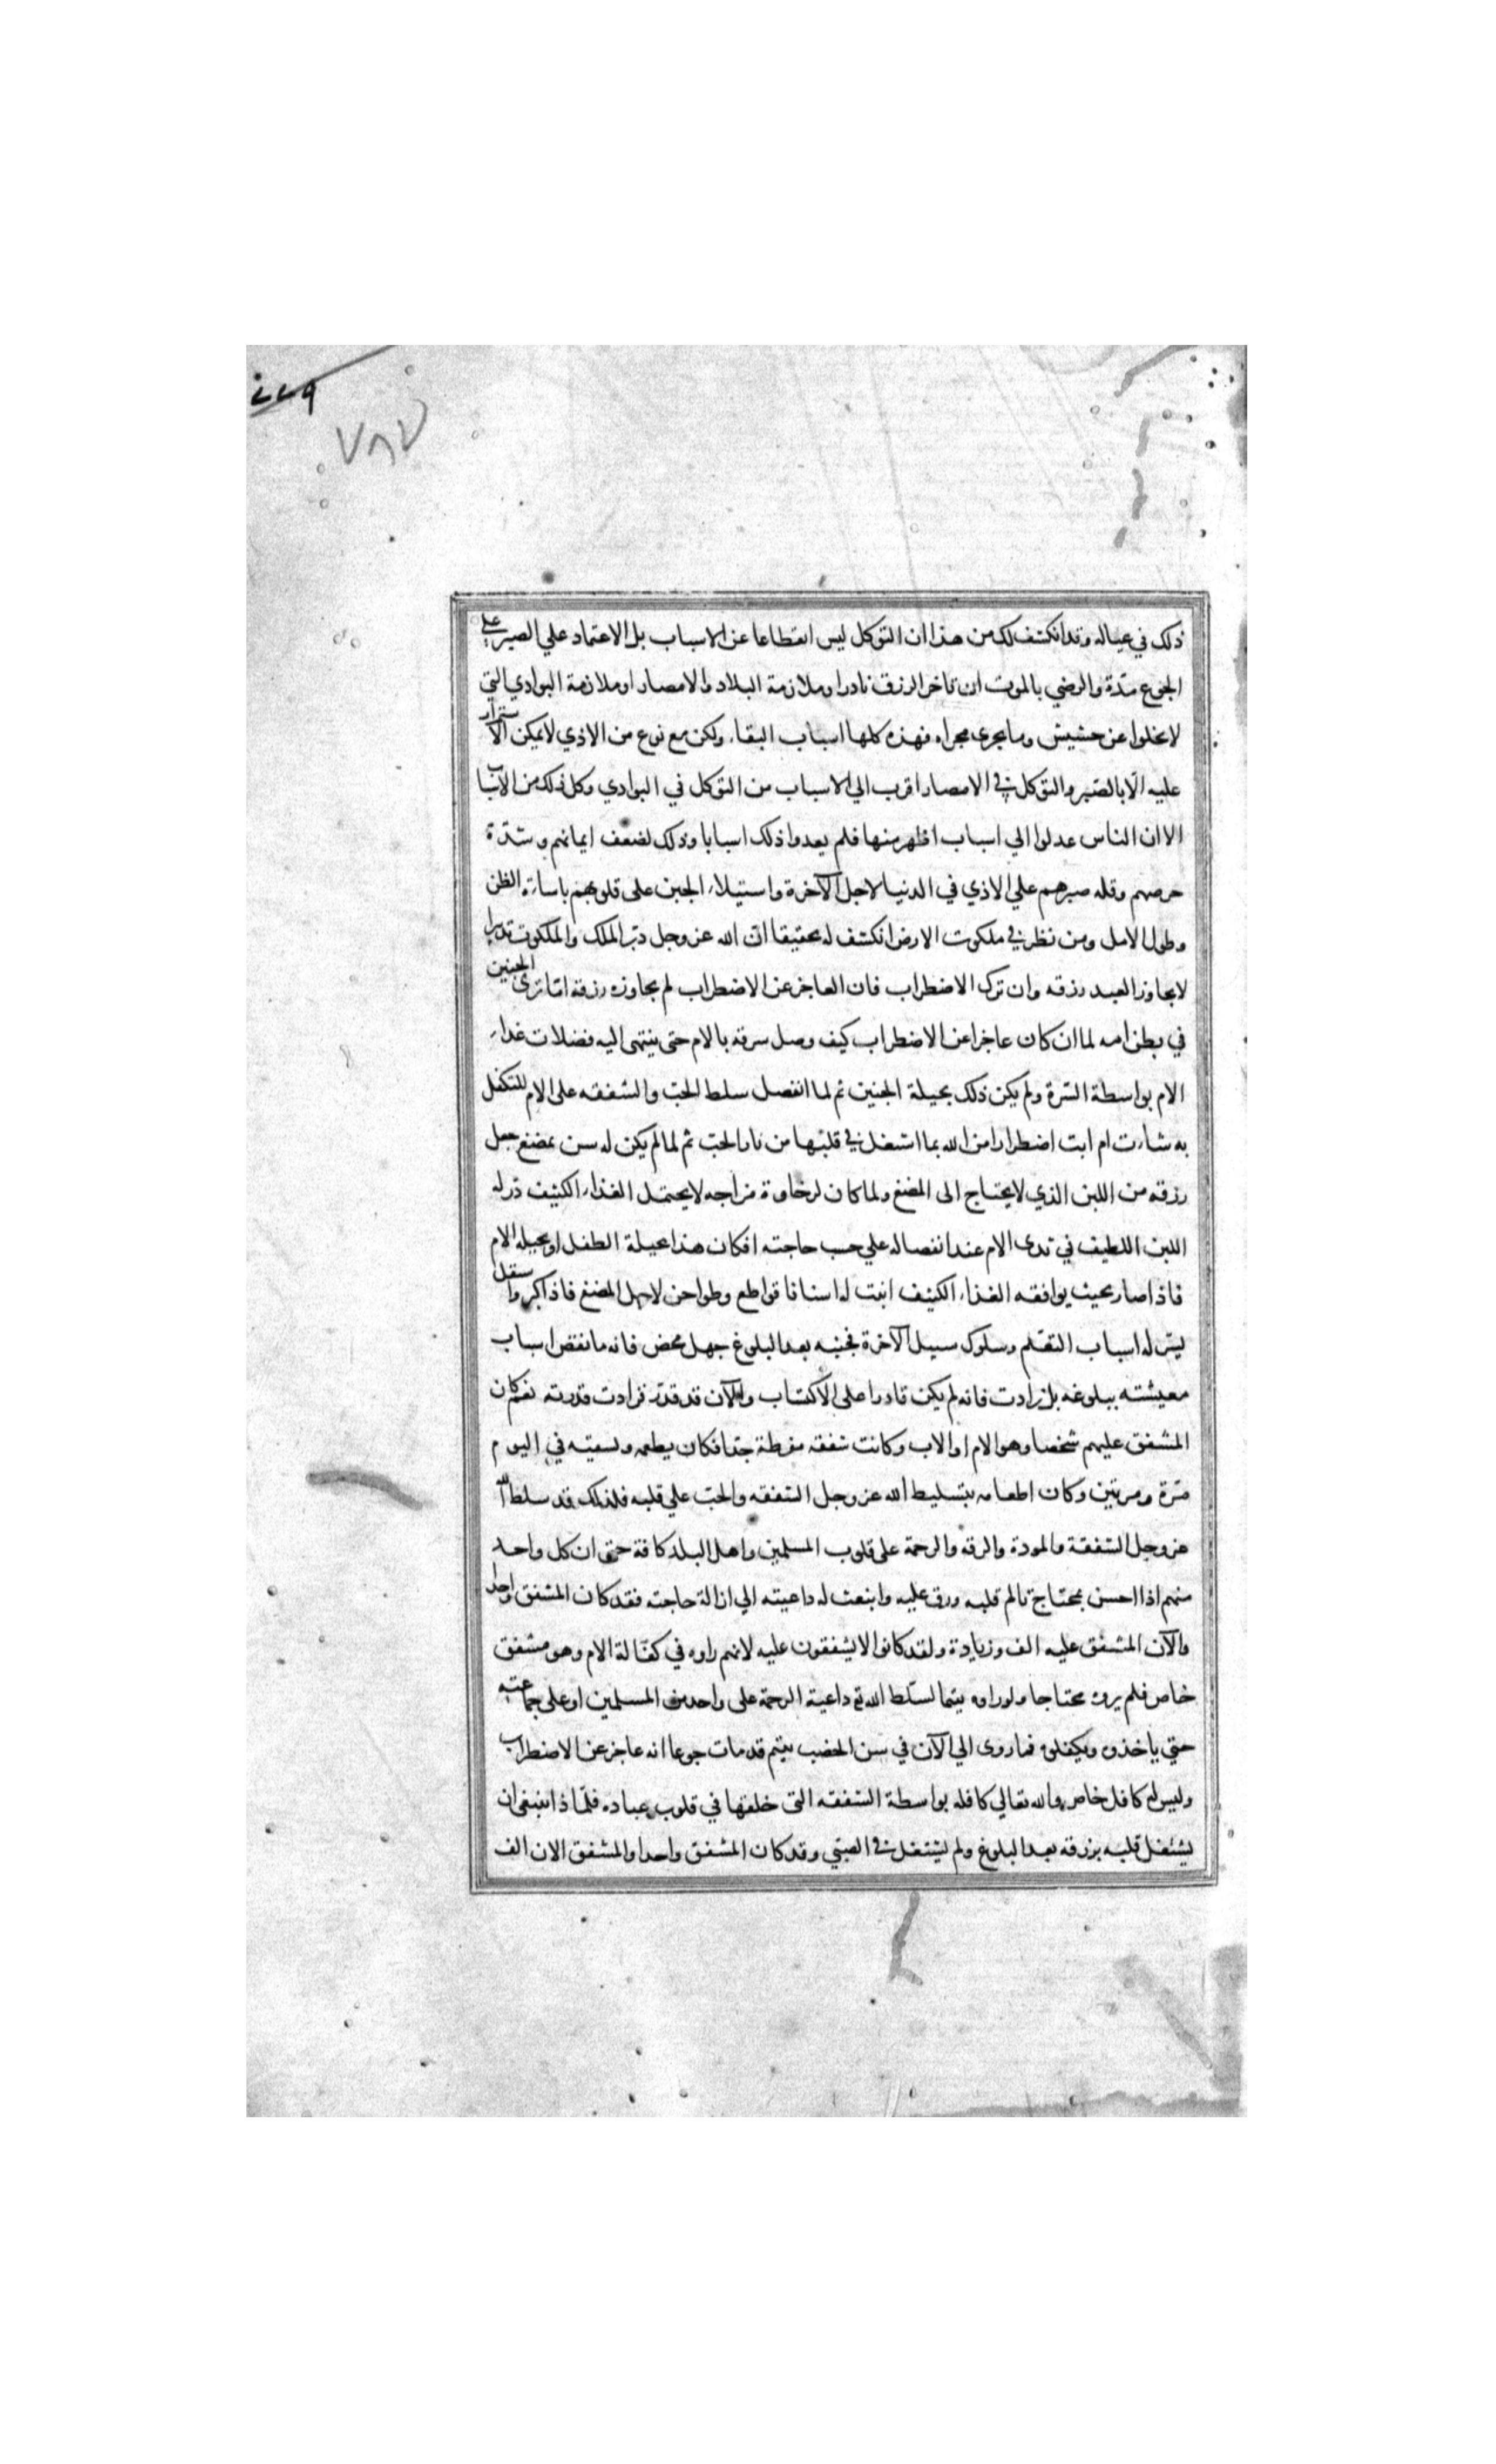 ٤٧٩
٧٨٧
ذلك في عياله وقد انكشف لك من هذا ان التوكل ليس انقطاعا عن الاسباب بل الاعتماد علي الصبر علي
الجوع مدّة والرضي بالموت ان تاخر الرزق نادرا وملازمة البلاد والامصار او ملازمة البوادي التي
لا تخلوا عن حشيش وما يجري مجراه فهذه كلها اسباب البقاء ولكن مع نوع من الاذي لا يمكن الاستمرار
عليه الّا بالصّبر والتوكل في الامصار اقرب الي الاسباب من التوكل في البوادي وكل ذلك من الاسباب
الا ان الناس عدلوا الي اسباب اظهر منها فلم يعدوا ذلك اسبابا وذلك لضعف ايمانهم وشدّة
حرصهم وقله صبرهم علي الاذي في الدنيا لاجل الآخرة واستيلاء الجبن على قلوبهم باساءة الظن
وطول الامل ومن نظر في ملكوت الارض انكشف له تحقيقا انّ الله عز وجل دبّر الملك والملكوت تدبيرا
لا يجاوز العبد رزقه وان ترك الاضطراب فان العاجز عن الاضطراب لم يجاوزه رزقه امّا ترى الجنين
في بطن امه لما ان كان عاجزا عن الاضطراب كيف وصل سرته بالام حتى ينتهى اليه فضلات غداء
الام بواسطة السّرة ولم يكن ذلك بحيلة الجنين ثم لما انفصل سلط الحبّ والشفقه على الام للتكفل
به شاءت ام ابت اضطرارا من الله بما اشتعل في قلبها من نار الحبّ ثم لما لم يكن له سن يمضغ جعل
رزقه من اللبن الذي لا يحتاج الى المضغ ولما كان لرخاوة مزاجه لا يحتمل الغذاء الكثيف درله
اللبن اللطيف في ثدى الام عند انفصاله علي حسب حاجته افكان هذا بحيلة الطفل او بحيله الام
فاذا صار بحيث يوافقه الغذاء الكثيف انبت له اسنانا قواطع وطواحن لاجل المضغ فاذا كبر واستقل
يسّر له اسباب التعّلم وسلوك سبيل الآخرة فجبنه بعد البلوغ جهل محض فانه ما نقص اسباب
معيشته ببلوغه بل زادت فانه لم يكن قادرا على الاكتساب والآن قد قدر فزادت قدرته نعم كان
المشفق عليهم شخصا وهو الام او الاب وكانت شفقه مفرطة جدّا فكان يطعمه ويسقيه في اليوم
مّرة ومرتين وكان اطعامه بتسليط الله عز وجل الشفقه والحبّ علي قلبه فلذلك قد سلط الله
عز وجل الشفقة والمودة والرقه والرحمة على قلوب المسلمين واهل البلد كافة حتى ان كل واحد
منهم اذا احسن بمحتاج تالم قلبه ورق عليه وابنعث له داعيته الي ازالة حاجته فقد كان المشفق واحدا
والآن المشفق عليه الف وزيادة ولقد كانوا لا يشفقون عليه لانهم راوه في كفالة الام وهو مشفق
خاص فلم يروه محتاجا ولو راوه يتيما لسّلط الله تع داعية الرحمة على واحد من المسلمين او على جماعته
حتي ياخذوه ويكفلوه فما روى الي الآن في سن الخصب يتيم قد مات جوعا انه عاجز عن الاضطراب
وليس له كافل خاص والله تعالي كافله بواسطة الشفقه التى خلقها في قلوب عباده فلمّاذا ينبغى ان
يشتغل قلبه برزقه بعد البلوغ ولم يشتغل في الصبّي وقد كان المشفق واحدا والمشفق الان الف